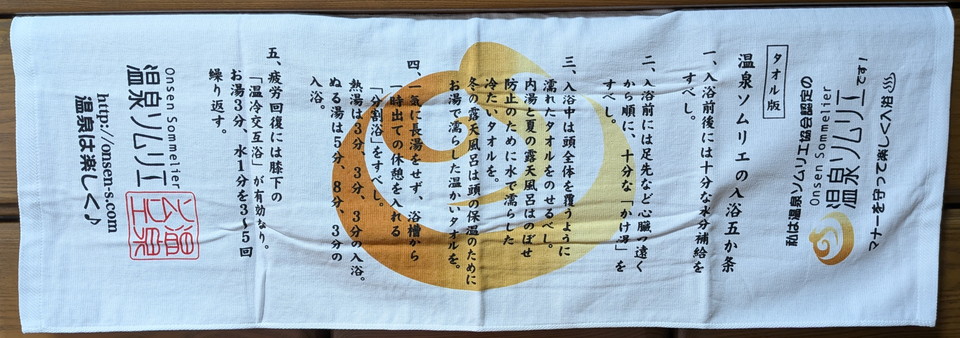 マナーを守って楽しく入浴♨
私は温泉ソムリエ協会認定の
Onsen Sommelier
温泉ソムリエです!
タオル版
温泉ソムリエの入浴五か条
一、入浴前後には十分な水分補給を
すべし。
二、入浴前には足先など心臓の遠く
から順に、十分な「かけ湯」を
すべし。
三、入浴中は頭全体を覆うように
濡れたタオルをのせるべし。
内湯と夏の露天風呂はのぼせ
防止のために水で濡らした
冷たいタオルを。
冬の露天風呂は頭の保温のために
お湯で濡らした温かいタオルを。
四、一気に長湯をせず、浴槽から
一時出ての休憩を入れる
「分割浴」をすべし。
熱湯は3分、3分、3分の入浴。
ぬる湯は5分、8分、3分の
入浴。
五、疲労回復には膝下の
「温冷交互浴」が有効なり。
お湯3分、水1分を3~5回
繰り返す。
Onsen Sommelier
温泉ソムリエ
温泉
ソムリエ
http://onsen-s.com
温泉は楽しく♪